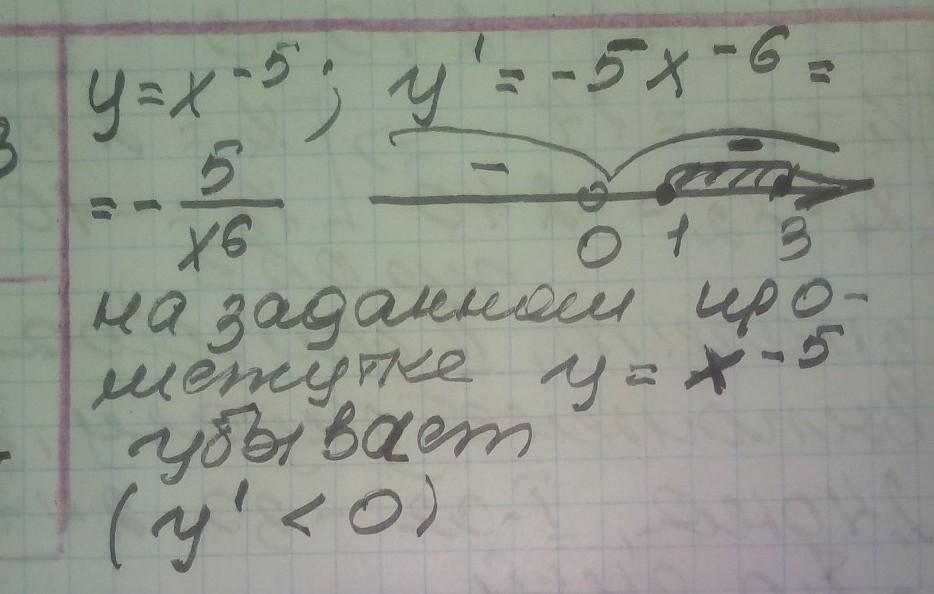 y = x⁻⁵; y' = -5x⁻⁶ =
= - 5/x⁶
- -
0 1 3
на заданном про-
межутке y = x⁻⁵
убывает
(y' < 0)